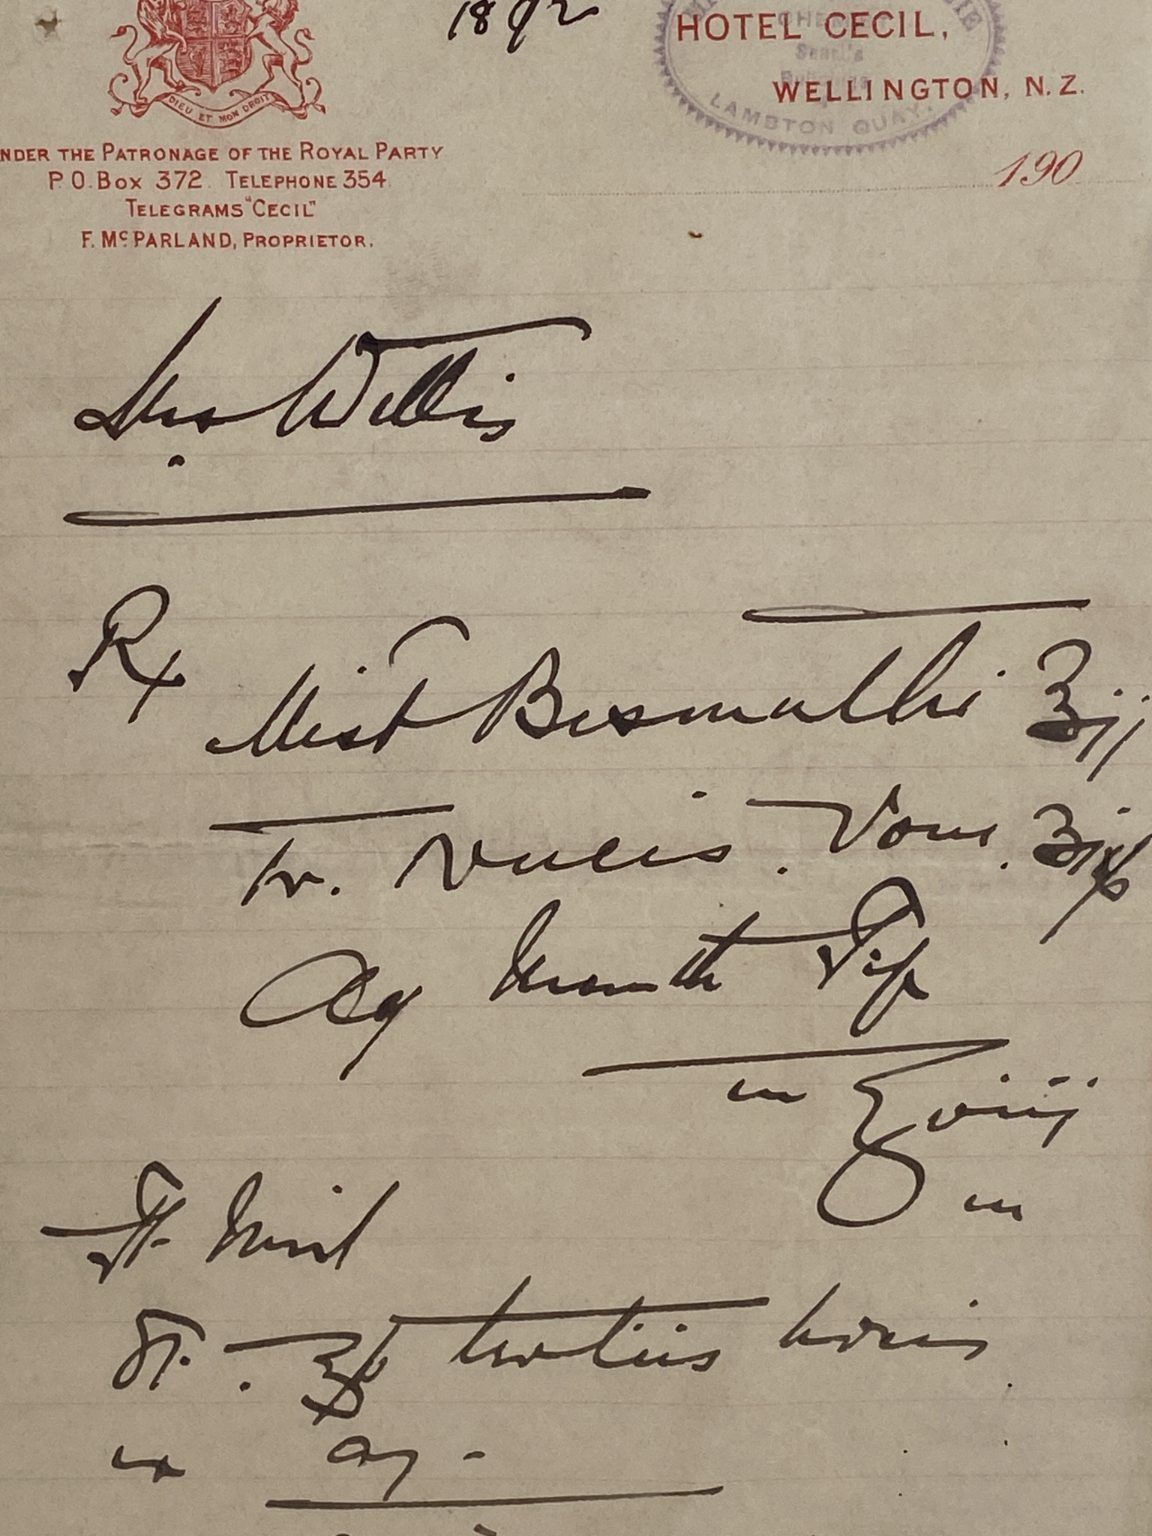 1892
HOTEL CECIL,
WELLINGTON, N.Z.
LAMBTON QUAY.
DIEU ET MON DROIT
NDER THE PATRONAGE OF THE ROYAL PARTY
P.O. BOX 372. TELEPHONE 354.
TELEGRAMS "CECIL"
F. McPARLAND, PROPRIETOR.
190
Mrs Willis
Rx
Mist Bismuthi ℥ij
Tr. Nucis. Vom. ʒiss
Aq Menth Pip
Ft. Mist
St. ℥ss tertiis horis
ex aq.